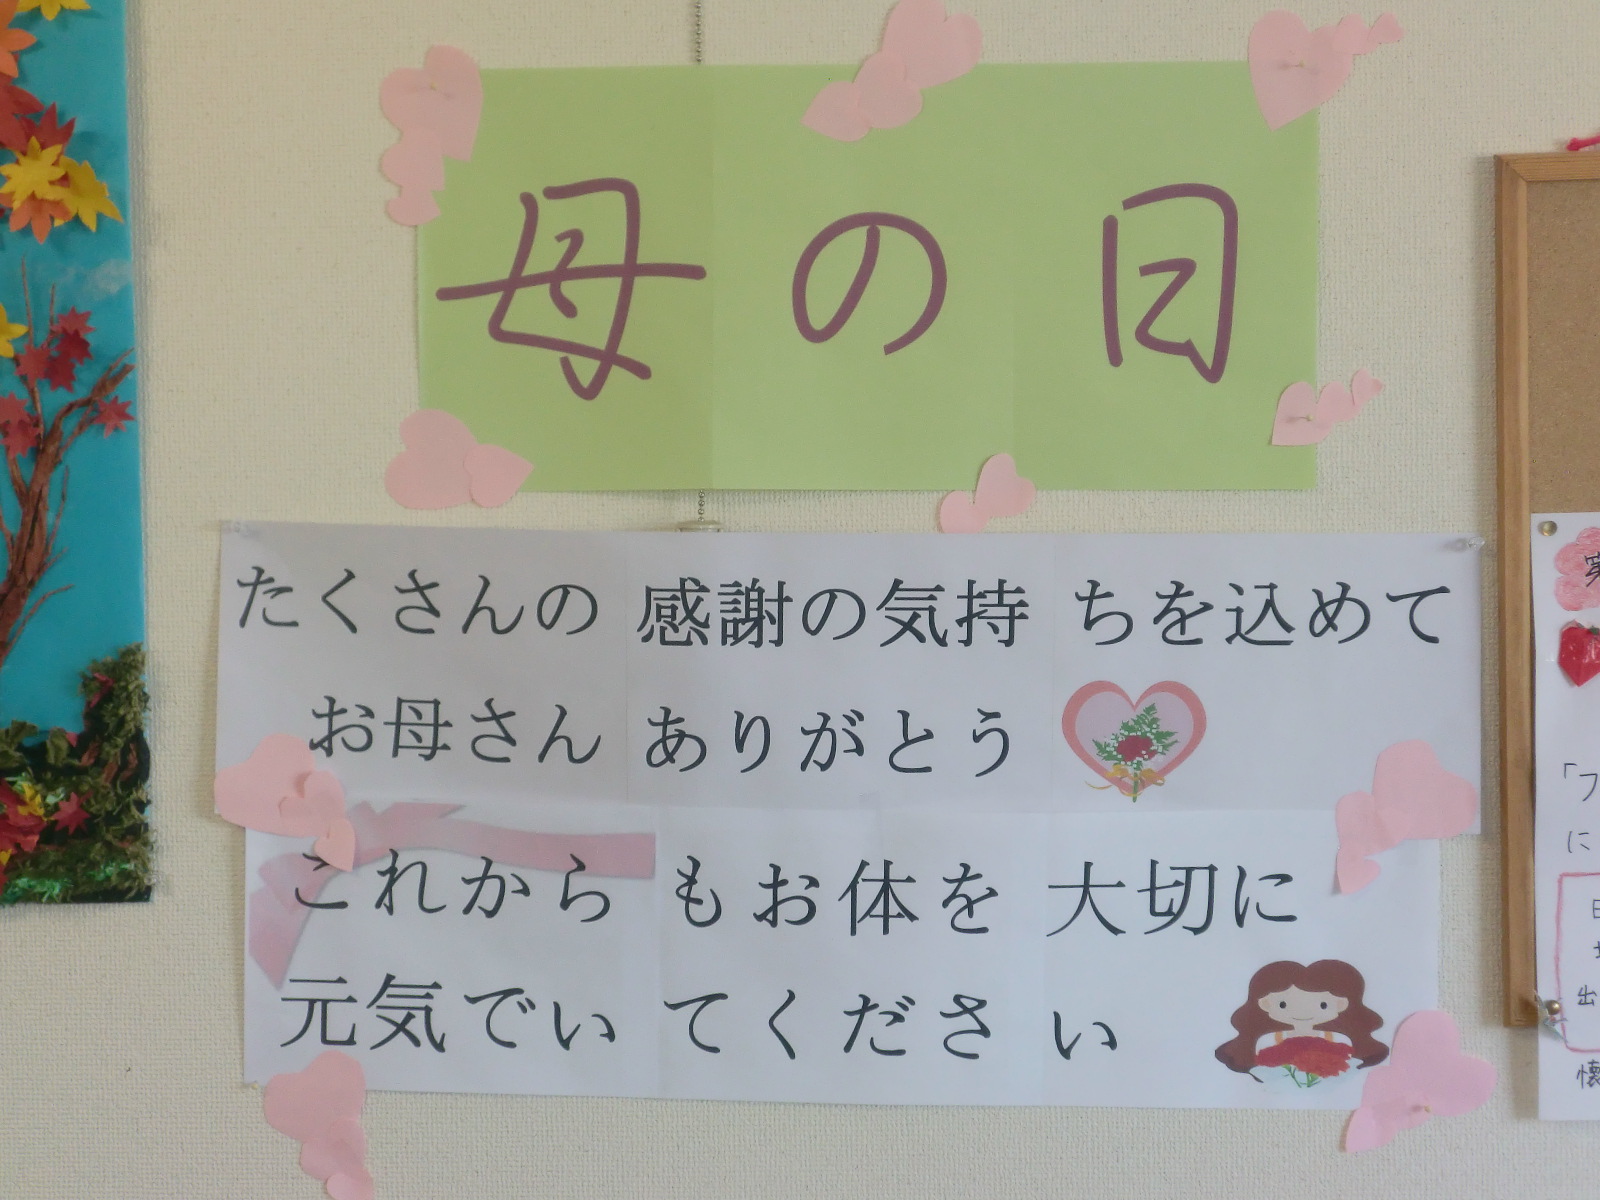 母の日
たくさんの感謝の気持ちを込めて
お母さんありがとう
これからもお体を大切に
元気でいてください
「フ
に
出